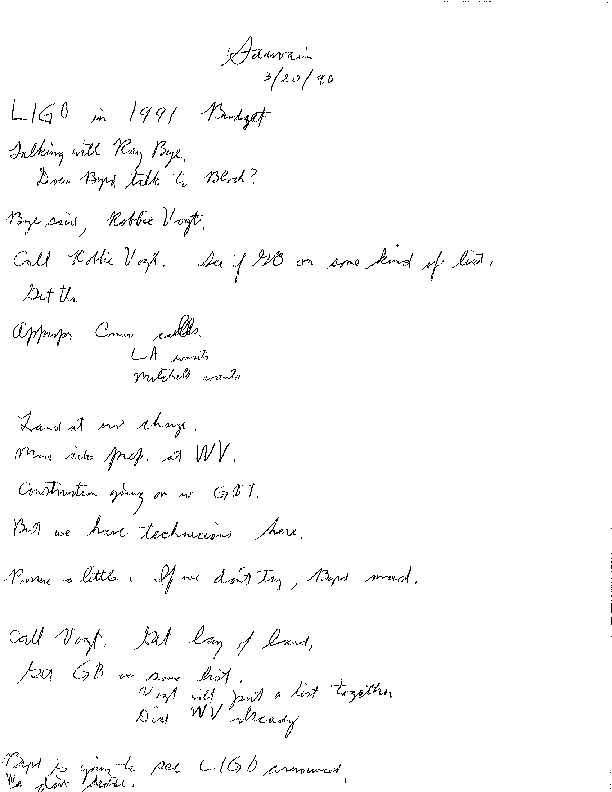 3/20/90
LIGO in 1991 Budget
Talking with Ray Bye.
Does Byrd talk to Bloch?
Bye said, Robbie Vogt.
Call Robbie Vogt. See if GB on some kind of list.
Get the
Approps Comm calls.
LA wants
Mitchell wants
Land at no charge.
site prep. at WV.
Construction going on w GBT.
But we have technicians here.
Pursue a little. If we don't try, Byrd mad.
Call Vogt. Get lay of land,
Get GB on some list.
Vogt will put a list together
WV already
Byrd is going to see LIGO announced,